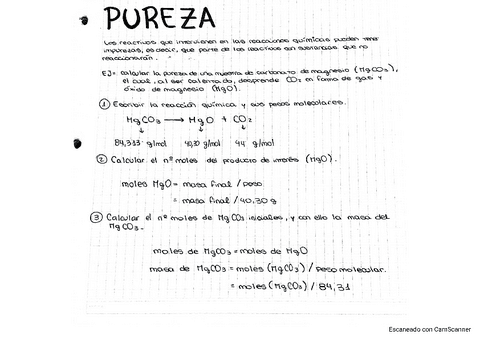 PUREZA
Los reactivos que intervienen en las reacciones químicas pueden tener
impurezas, es decir, que parte de los reactivos son sustancias que no
reaccionarán.
EJ= calcular la pureza de una muestra de carbonato de magnesio (MgCO3),
el cual, al ser calentado, desprende CO2 en forma de gas y
óxido de magnesio (MgO).
① Escribir la reacción química y sus pesos moleculares.
MgCO3 → MgO + CO2
↓ ↓ ↓
84,313 g/mol 40,30 g/mol 44 g/mol
② Calcular el nº moles del producto de interés (MgO).
moles MgO = masa final / peso
= masa final / 40,30 g
③ Calcular el nº moles de MgCO3 iniciales, y con ello la masa del
MgCO3.
moles de MgCO3 = moles de MgO
masa de MgCO3 = moles (MgCO3) / peso molecular.
= moles (MgCO3) / 84,31
Escaneado con CamScanner